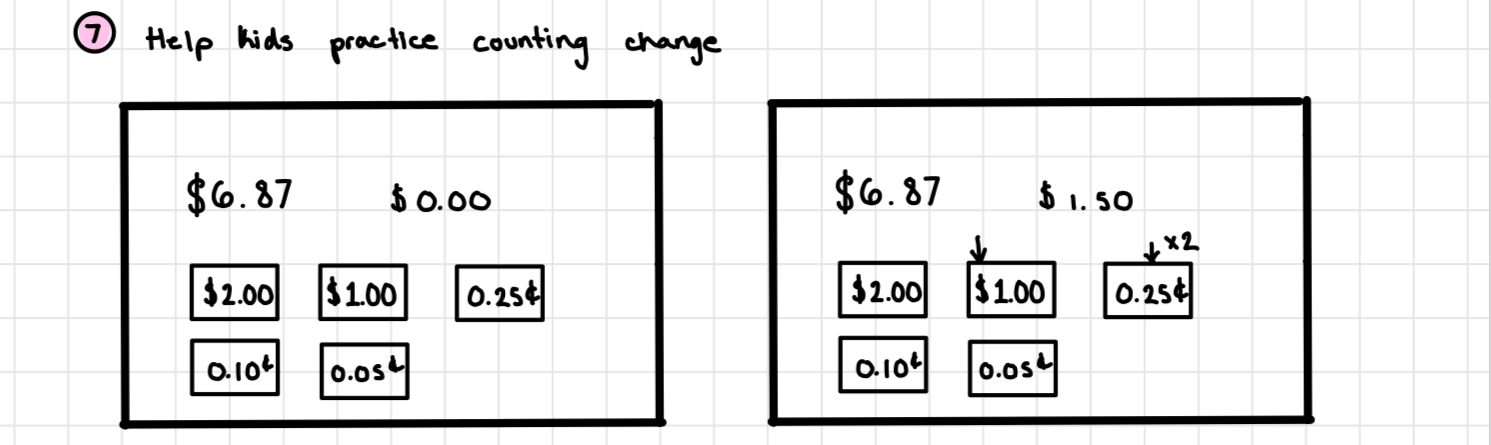 7 Help kids practice counting change
$6.87 $0.00
$2.00 $1.00 0.25¢
0.10¢ 0.05¢
$6.87 $1.50
x2
$2.00 $1.00 0.25¢
0.10¢ 0.05¢